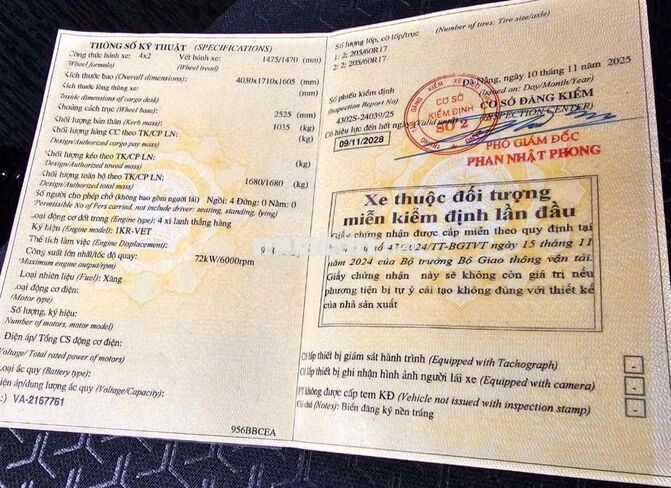 THÔNG SỐ KỸ THUẬT (SPECIFICATIONS)
Công thức bánh xe: 4x2 Vết bánh xe: 1475/1470 (mm)
(Wheel formula) (Wheel tread)
Kích thước bao (Overall dimensions): 4030x1710x1605 (mm)
Kích thước lòng thùng xe: (mm)
(Inside dimensions of cargo deck)
Khoảng cách trục (Wheel base): 2525 (mm)
Khối lượng bản thân (Kerb mass): 1035 (kg)
Khối lượng hàng CC theo TK/CP LN: (kg)
(Design/Authorized cargo pay mass)
Khối lượng kéo theo TK/CP LN: (kg)
(Design/Authorized towed mass)
Khối lượng toàn bộ theo TK/CP LN: 1680/1680 (kg)
(Design/Authorized total mass)
Số người cho phép chở (không bao gồm người lái) Ngồi: 4 Đứng: 0 Nằm: 0
(Permissible No of Pers carried, not include driver: seating, standing, lying)
Loại động cơ đốt trong (Engine type): 4 xi lanh thẳng hàng
Ký hiệu (Engine model): 1KR-VET
Thể tích làm việc (Engine Displacement):
Công suất lớn nhất/tốc độ quay: 72kW/6000rpm
(Maximum engine output/rpm)
Loại nhiên liệu (Fuel): Xăng
Loại động cơ điện:
(Motor type)
Số lượng, ký hiệu:
(Number of motors, motor model)
Điện áp/ Tổng CS động cơ điện:
(Voltage/ Total rated power of motors)
Loại ắc quy (Battery type):
Điện áp/dung lượng ắc quy (Voltage/Capacity):
VA-2167761
956BBCEA
Số lượng lốp, cỡ lốp/trục (Number of tires; Tire size/axle)
1: 2; 205/60R17
2: 2; 205/60R17
Số phiếu kiểm định
(Inspection Report No)
4302S-24039/25
Có hiệu lực đến hết ngày (Valid until)
09/11/2028
Đà Nẵng, ngày 10 tháng 11 năm 2025
(Issued on: Day/Month/Year)
CƠ SỞ ĐĂNG KIỂM
(INSPECTION CENTER)
CƠ SỞ
KIỂM ĐỊNH
SỐ 2
PHÓ GIÁM ĐỐC
PHAN NHẬT PHONG
Xe thuộc đối tượng
miễn kiểm định lần đầu
Giấy chứng nhận được cấp miễn theo quy định tại
số 47/2024/TT-BGTVT ngày 15 tháng 11
năm 2024 của Bộ trưởng Bộ Giao thông vận tải.
Giấy chứng nhận này sẽ không còn giá trị nếu
phương tiện bị tự ý cải tạo không đúng với thiết kế
của nhà sản xuất
Có lắp thiết bị giám sát hành trình (Equipped with Tachograph) -
Có lắp thiết bị ghi nhận hình ảnh người lái xe (Equipped with camera) -
PT không được cấp tem KĐ (Vehicle not issued with inspection stamp) -
Ghi chú (Notes): Biển đăng ký nền trắng